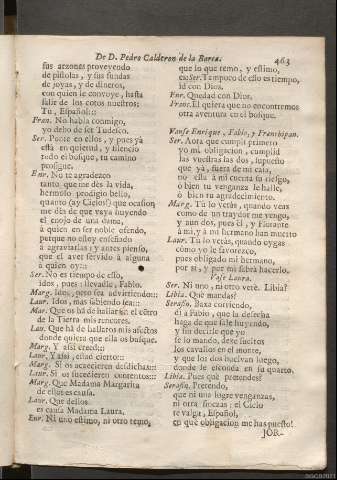 De D. Pedro Calderon de la Barca. 463
sus arzones proveyendo
de pistolas, y sus fundas
de joyas, y de dineros,
con quien le convoye, hasta
salir de los cotos nuestros;
Tu, Español:::
Fran. No habla conmigo,
yo debo de ser Tudesco.
Ser. Ponte en ellos, y pues yà
està en quietud, y silencio
todo el bosque, tu camino
prosigue.
Enr. No te agradezco
tanto, que me dès la vida,
hermoso prodigio bello,
quanto (ay Cielos!) que ocasion
me dès de que vaya huyendo
el enojo de una dama,
à quien en ser noble ofendo,
porque no estoy enseñado
à agraviarlas; y antes pienso,
que el aver servido à alguna
à quien oy:::
Ser. No es tiempo de esso,
idos, pues: llevadle, Fabio.
Marg. Idos, pero sea advirtiendo:::
Laur. Idos, mas sabiendo sea:::
Mar. Que os hà de hallar en el cetro
de la Tierra mis rencores.
Lau. Que hà de hallaros mis afectos
donde quiera que ella os busque.
Marg. Y assi creed:::
Laur. Y assi, estad cierto:::
Marg. Si os acaecieren desdichas:::
Laur. Si os sucedieren contentos:::
Marg. Que Madama Margarita
de ellos es causa.
Laur. Que dellos
es causa Madama Laura.
Enr. Ni uno estimo, ni otro temo,
que lo que temo, y estimo,
es: Ser. Tampoco de esso es tiempo,
id con Dios.
Enr. Quedad con Dios.
Franc. El quiera que no encontremos
otra aventura en el bosque.
Vanse Enrique, Fabio, y Franchipan.
Ser. Aora que cumplì primero
yo mi obligacion, cumplid
las vuestras las dos, supuesto
que yà, fuera de mi casa,
no està à mi cuenta su riesgo,
ò bien tu venganza le halle,
ò bien tu agradecimiento.
Marg. Tu lo veràs, quando veas
como de un traydor me vengo,
y aun dos, pues èl, y Florante
à mì, y à mi hermano han muerto
Laur. Tu lo veràs, quando oygas
cómo yo le favorezco,
pues obligado mi hermano,
por sì, y por mì sabrà hacerlo.
Vase Laura.
Ser. Ni uno, ni otro verè. Libia?
Libia. Què mandas?
Serafin. Baxa corriendo,
dì à Fabio, que la desecha
haga de que sale huyendo,
y sin decirle que yo
se lo mando, dexe sueltos
los cavallos en el monte,
y que los dos buelvan luego,
donde le esconda en su quarto.
Libia. Pues què pretendes?
Serafin. Pretendo,
que ni una logre venganzas,
ni otra finezas; el Cielo
te valga, Español,
en què obligacion me has puesto!
JOR-